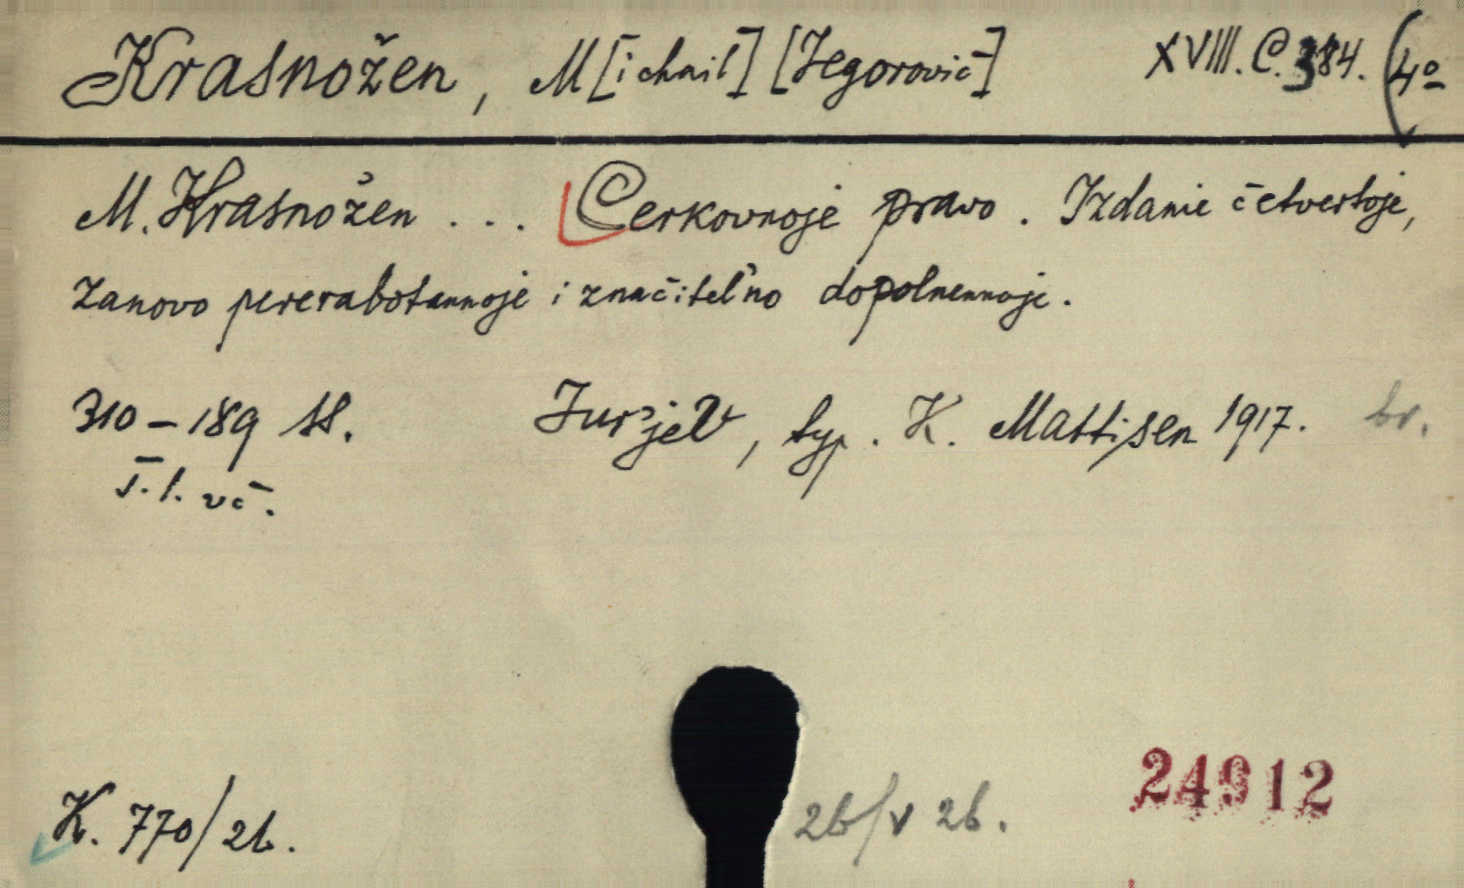 Krasnožen, M[ichail] [Jegorovič] XVIII. C. 384. (4º
M. Krasnožen ... Cerkovnoje pravo. Izdanie četvertoje,
zanovo pererabotannoje i značitel'no dopolnennoje.
310 – 189 SS. Jur'jev, typ. K. Mattisen 1917. br.
T. 1. vč.
K. 770/26. 26/V 26.
24912